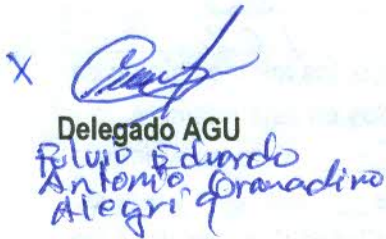 X
Delegado AGU
Fulvio Eduardo
Antonio Granadino
Alegría